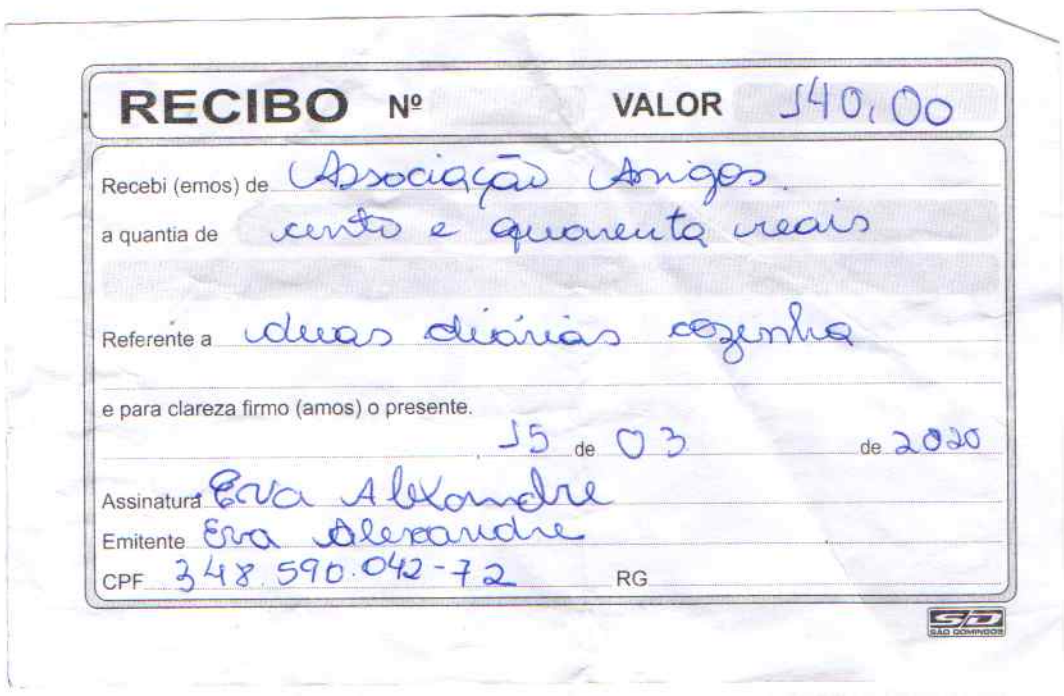 RECIBO Nº VALOR 140,00
Recebi (emos) de Associação Amigos.
a quantia de cento e quarenta reais
Referente a duas diárias cozinha
e para clareza firmo (amos) o presente.
, 15 de 03 de 2020
Assinatura Eva Alexandre
Emitente Eva Alexandre
CPF 348.590.042-72 RG
SD
SÃO DOMINGOS